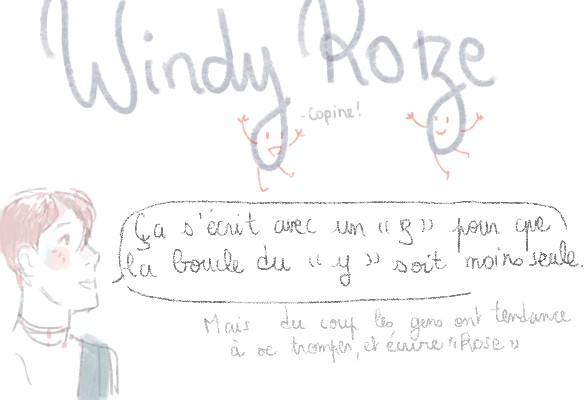 Windy Roze
- Copine!
Ça s'écrit avec un "z" pour que
la boucle du "y" soit moins seule.
Mais du coup les gens ont tendance
à se tromper, et écrire "Rose"